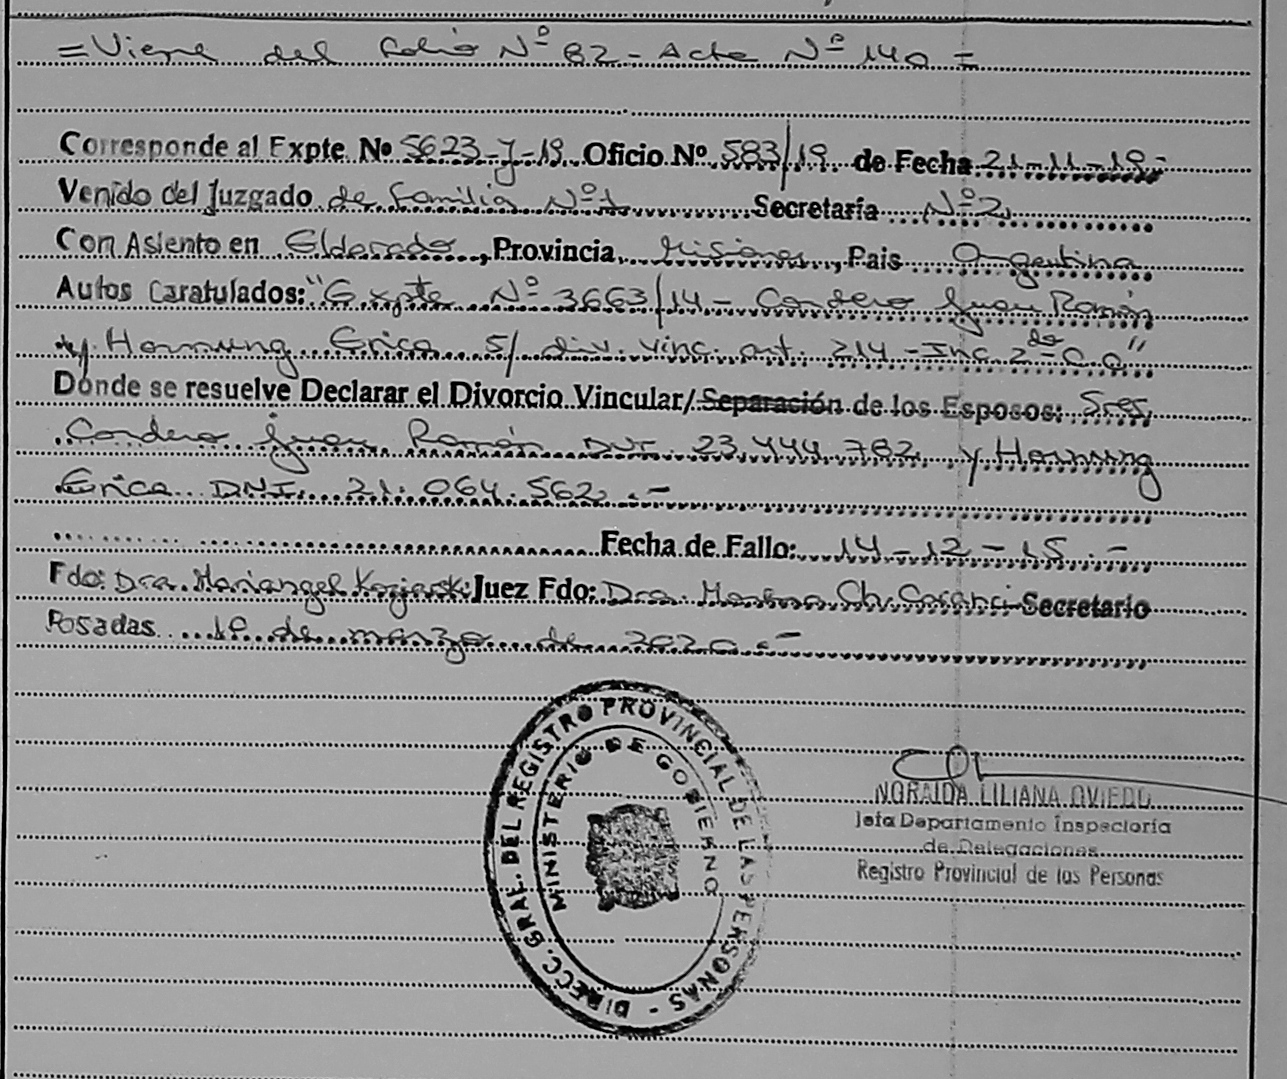 = Viene del folio Nº 82 - Acta Nº 140 =
Corresponde al Expte Nº 5623-J-19. Oficio Nº 583/19 de Fecha 21-11-19-
Venido del Juzgado de Familia Nº1 Secretaría Nº2
Con Asiento en Eldorado, Provincia Misiones, Pais Argentina
Autos Caratulados: "Expte Nº 3663/14 - Cordero Juan Ramón
y Hornung Erica S/ div. vinc. art. 214 - Inc 2do - C.C"
Donde se resuelve Declarar el Divorcio Vincular/Separación de los Esposos: Sres.
Cordero Juan Ramón DNI 23.444.782 y Hornung
Erica DNI. 21.064.562.-
Fecha de Fallo: 14-12-15.-
Fdo: Dra. Mariangel Koziarski Juez Fdo: Dra. Ch. Secretario
Posadas 19 de marzo de 2020.-
DIRECC. GRAL. DEL REGISTRO PROVINCIAL DE LAS PERSONAS -
MINISTERIO DE GOBIERNO
NORAIDA LILIANA OVIEDO
Jefa Departamento Inspectoría
de Delegaciones
Registro Provincial de las Personas